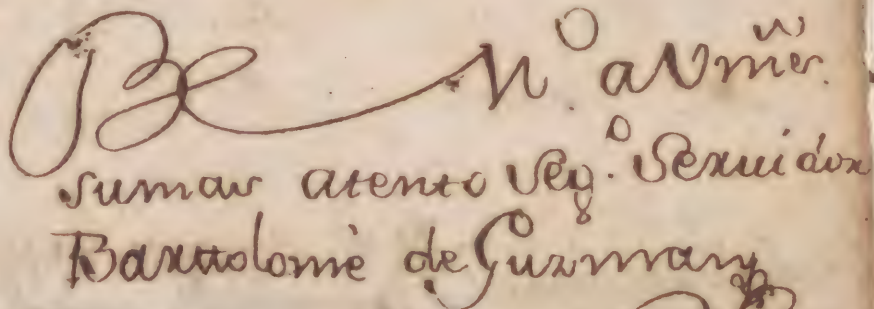 Be N.º a Vm̃e.
su mas atento Seg.º Servidor
Barttolomè de Guzman